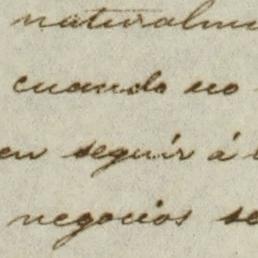 naturalm
cuando no
en seguir á l
negocios se